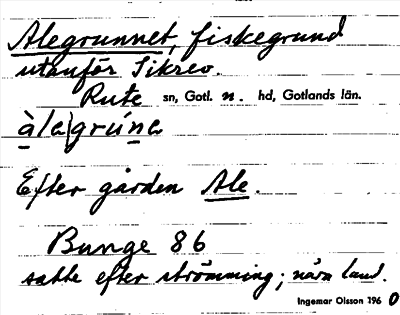 Alegrunnet, fiskegrund
utanför Sikrev.
Rute sn, Gotl. n. hd, Gotlands län.
àla|grúna
Efter gården Ale.
Bunge 86
satte efter strömming; nära land.
Ingemar Olsson 1960